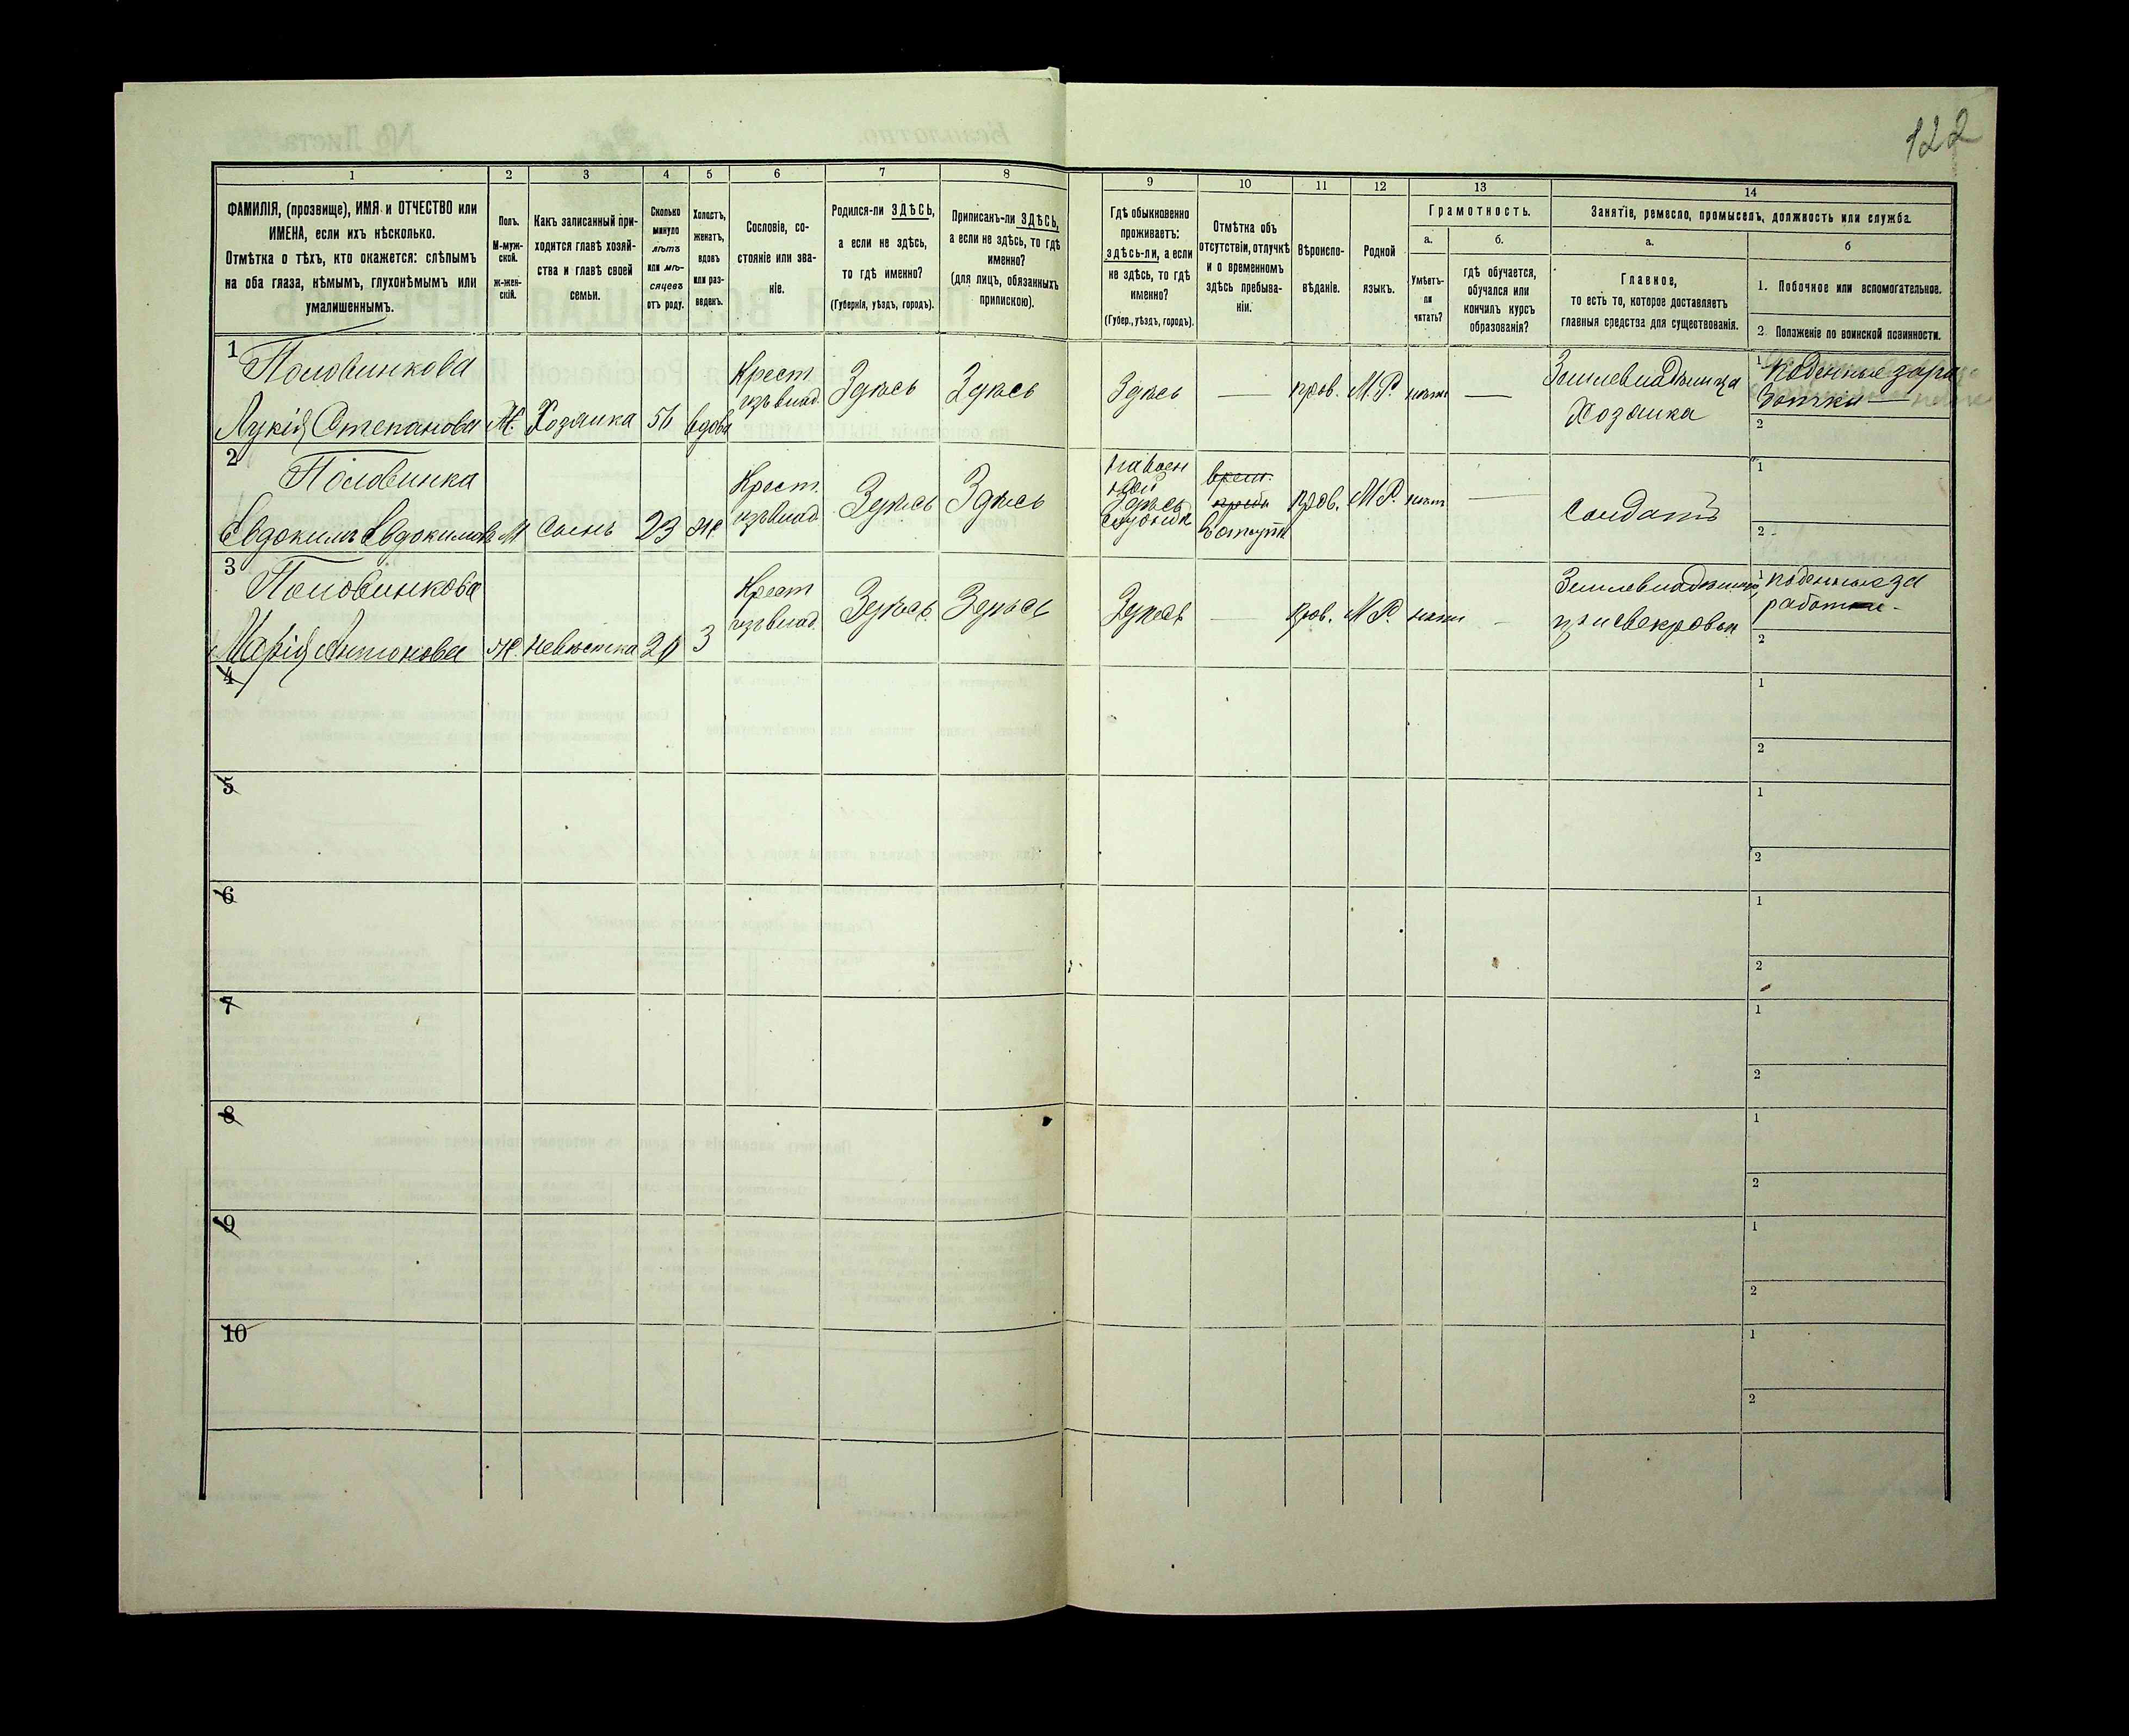 122
1 2 3 4 5 6 7 8 9 10 11 12 13 14
ФАМИЛІЯ, (прозвище), ИМЯ и ОТЧЕСТВО или
ИМЕНА, если ихъ нѣсколько.
Отмѣтка о тѣхъ, кто окажется: слѣпымъ
на оба глаза, нѣмымъ, глухонѣмымъ или
умалишеннымъ.
Полъ.
М-муж-
ской.
ж-жен-
скій.
Какъ записанный при-
ходится главѣ хозяй-
ства и главѣ своей
семьи.
Сколько
минуло
лѣтъ
или мѣ-
сяцевъ
отъ роду.
Холостъ,
женатъ,
вдовъ
или раз-
веденъ.
Сословіе, со-
стояніе или зва-
ніе.
Родился-ли ЗДѢСЬ,
а если не здѣсь,
то гдѣ именно?
(Губернія, уѣздъ, городъ).
Приписанъ-ли ЗДѢСЬ,
а если не здѣсь, то гдѣ
именно?
(для лицъ, обязанныхъ
припискою).
Гдѣ обыкновенно
проживаетъ:
здѣсь-ли, а если
не здѣсь, то гдѣ
именно?
(Губер., уѣздъ, городъ).
Отмѣтка объ
отсутствіи, отлучкѣ
и о временномъ
здѣсь пребыва-
ніи.
Вѣроиспо-
вѣданіе.
Родной
языкъ.
Грамотность.
а.
Умѣетъ-
ли
читать?
б.
гдѣ обучается,
обучался или
кончилъ курсъ
образованія?
Занятіе, ремесло, промыселъ, должность или служба.
а.
Главное,
то есть то, которое доставляетъ
главныя средства для существованія.
б
1. Побочное или вспомогательное.
2. Положеніе по воинской повинности.
1
Половинкова
Лукія Степанова
Ж.
Хозяйка
56
вдова
Крест.
изъ влад.
Здѣсь
Здѣсь
Здѣсь
—
прав.
М. Р.
нѣтъ
—
Землевладѣлица
Хозяйка
1 Поденные зара
ботки
2
2
Половинка
Евдокимъ Евдокимовъ
М
Сынъ
23
Ж.
Крест.
изъ влад.
Здѣсь
Здѣсь
Здѣсь
прав.
М. Р.
нѣтъ
—
Солдатъ
1
2
3
Половинкова
Марія Антонова
Ж.
невѣстка
20
З
Крест
изъ влад.
Здѣсь
Здѣсь
Здѣсь
—
прав.
М. Р.
нѣтъ
Землевладѣлица
при свекрови
1 поденные за
работки
2
4
1
2
5
1
2
6
1
2
7
1
2
8
1
2
9
1
2
10
1
2